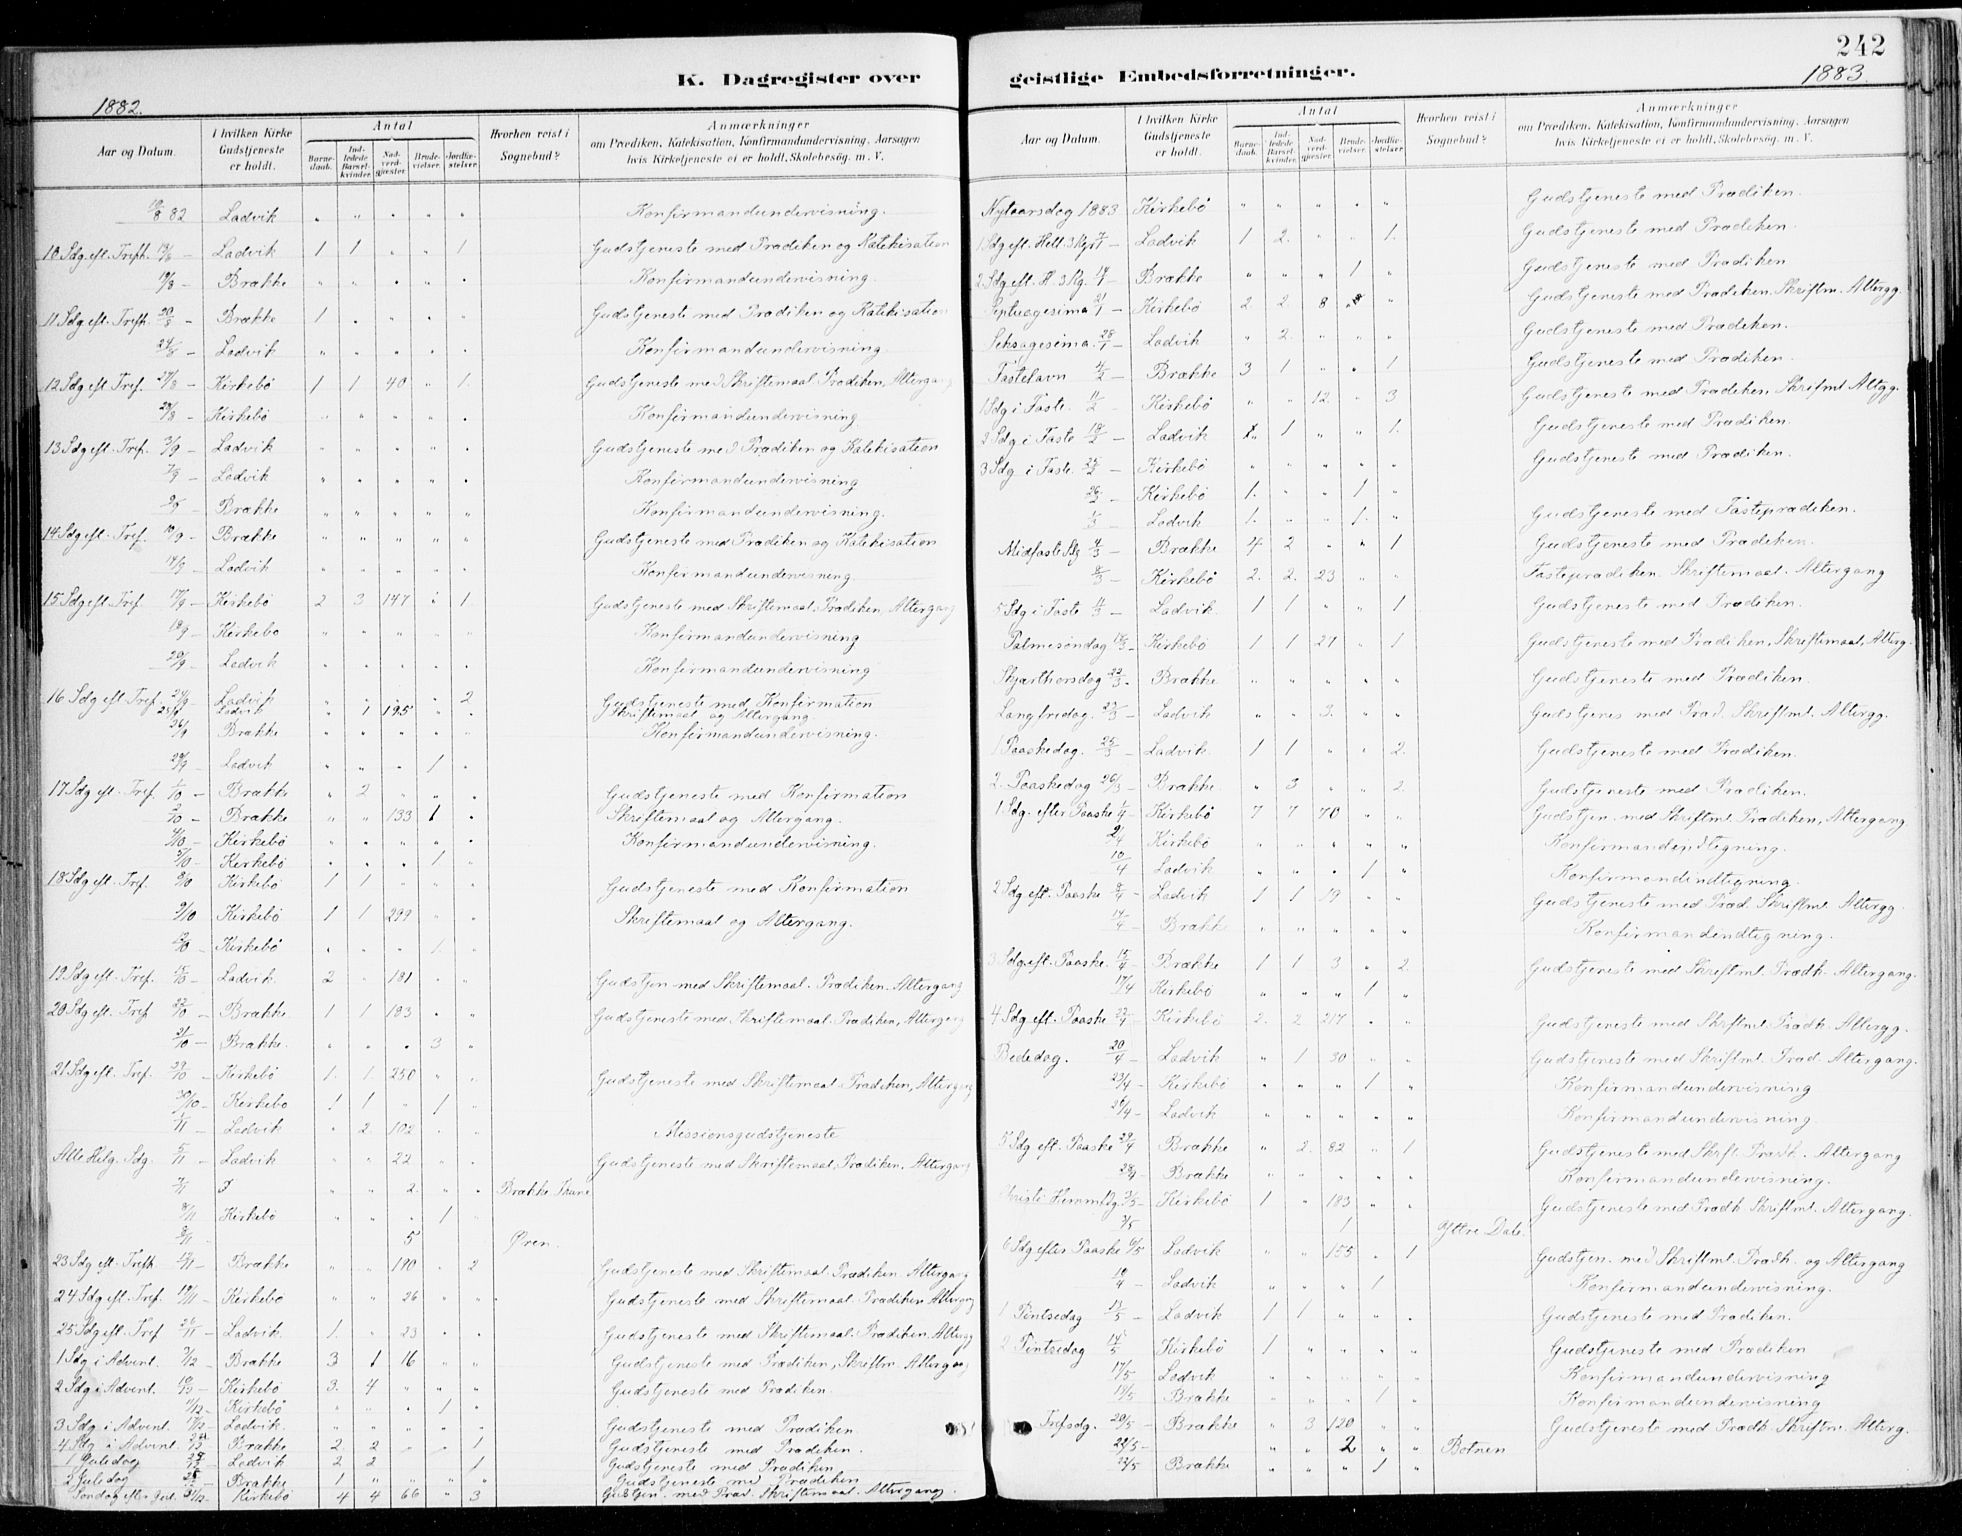 242
K. Dagregister over geistlige Embedsforretninger.
1882.
1883.
Aar og Datum. | I hvilken Kirke Gudstjeneste er holdt. | Antal | Barnedaab. | Indledede Barselkvinder. | Nadverdgjester. | Brudevielser. | Jordfæstelser. | Hvorhen reist i Sognebud? | Anmærkninger om Prædiken, Katekisation, Konfirmandundervisning, Aarsagen hvis Kirketjeneste ei er holdt, Skolebesøg. m. V.
8 82 Ladvik " " " " " Konfirmandundervisning.
10 Sdg. eft. Trefh. 13/8 – Ladvik 1 1 " " 1 Gudstjeneste med Prædiken og Katekisation
19/8 – Brække " " " " " Konfirmandundervisning.
11 Sdg eft. Trefh. 20/8 – Brække 1 " " " " Gudstjeneste med Prædiken og Katekisation
24/8 – Ladvik " " " " " Konfirmandundervisning.
12 Sdg eft. Tref. 27/8 – Kirkebö 1 1 40 " 1. Gudstjeneste med Skriftemaal Prædiken, Altergang
28/8 – Kirkebö " " " " " Konfirmandundervisning.
13 Sdg eft. Tref. 3/9 – Ladvik " " " " " Gudstjeneste med Prædiken og Katekisation
7/9 – Ladvik " " " " " Konfirmandundervisning
9/9 – Brække " " " " " Konfirmandundervisning.
14 Sdg eft. Tref. 10/9 – Brække " " " " " Gudstjeneste med Prædiken og Katekisation
14/9 – Ladvik " " " " " Konfirmandundervisning
15 Sdg eft. Tref. 17/9 – Kirkebö 2 3 147 " 1 Gudstjeneste med Skriftemaal, Prædiken, Altergang
18/9 – Kirkebö " " " " " Konfirmandundervisning
20/9 – Ladvik " " " " " Konfirmandundervisning
16 Sdg eft Tref. 24/9 – Ladvik " " " " 2 Gudstjeneste med Konfirmation
25/9 Ladvik " 1 195 " " Skriftemaal og Altergang.
26/9 Brække " " " " " Konfirmandundervisning.
Ladvik " " " 1 "
17 Sdg eft. Tref. 1/10 – Brække " 2 " " " Gudstjeneste med Konfirmation
2/10 – Brække " " 133 1 " Skriftemaal og Altergang.
4/10 – Kirkebö " " " " " Konfirmandundervisning.
5/10 – Kirkebö " " " 1 "
18 Sdg eft. Tref. 8/10 Kirkebö 1 1 " " " Gudstjeneste med Konfirmation
9/10 Kirkebö 1 1 299 " " Skriftemaal og Altergang.
Kirkebö " " " 1. "
19 Sdg eft. Tref. 15/10 – Ladvik. 2 " 181 " " Gudstjen med Skriftemaal. Prædiken. Altergang
20 Sdg eft. Tref. 22/10 – Brække 1 1 183 " " Gudstjeneste med Skriftemaal. Prædiken, Altergang
21/10 – Brække. " " " 3 "
21 Sdg eft. Tref. 29/10 – Kirkebö 1. 1. 250 " " Gudstjeneste med Skriftemaal Prædiken, Altergang
30/10 – Kirkebö 1 1 " 1 "
1/11 – Ladvik " 2. 102 " " Missionsgudstjeneste
Alle Helg. Sdg. 5/11 – Ladvik " " 22 " " Gudstjeneste med Skriftemaal, Prædiken, Altergang
7/11 " " 2. " " Brække
8/11 Kirkebö " " " 1 "
8/11 – 5 Øren.
23 Sdg eft. Trefh. 12/11 – Brække " " 190 " 2 Gudstjeneste med Skriftemaal. Prædiken. Altergang
24 Sdg eft. Tref. 19/11 – Kirkebö " " 26 " " Gudstjeneste med Skriftemaal. Prædiken Altergang
25 Sdg eft. Tref. 26/11 – Ladvik. 1. " 23 " " Gudstjeneste med Skriftemaal. Prædiken. Altergg
1 Sdg i Advent. 3/12 – Brække 3 1 16 " " Gudstjeneste med Prædiken, Skriftm. Altergang
2 Sdg i Advent. 10/12 – Kirkebö 3. 4 " " " Gudstjeneste med Prædiken.
11/12 – Kirkebö " " " 1 "
3 Sdg i Advent. 17/12 – Ladvik. " " " " " Gudstjeneste med Prædiken.
4 Sdg i Advent. – Brække 2 2 " " 1 Gudstjeneste med Prædiken.
1 Juledag – Ladvik 2 2 1 Gudstjeneste med Prædiken
2 Juledag – Brække 1 " " " " Gudstjeneste med Prædiken
Söndag efter Jul. 31/12 – Kirkebö 4 4 66 " 3 Gudstjen. med Præd. Skriftemaal. Altergang.
Aar og Datum. | I hvilken Kirke Gudstjeneste er holdt. | Antal | Barnedaab. | Indledede Barselkvinder. | Nadverdgjester. | Brudevielser. | Jordfæstelser. | Hvorhen reist i Sognebud? | Anmærkninger om Prædiken, Katekisation, Konfirmandundervisning, Aarsagen hvis Kirketjeneste ei er holdt, Skolebesøg. m. V.
Nytaarsdag 1883 Kirkebö " " " " " Gudstjeneste med Prædiken.
1 Sdg eft. Hell. 3 Kgr 7/1 – Ladvik 1 2. " " 1. Gudstjeneste med Prædiken.
2 Sdg eft. H. 3 Kg. 14/1 – Brække " " " 1 " Gudstjeneste med Prædiken
Septuagesima 21/1 – Kirkebö 2 2 8 " " Gudstjeneste med Prædiken. Skriftm. Altergg.
Seksagesima. 28/1 – Ladvik " 2. " " " Gudstjeneste med Prædiken.
Fastelavn 4/2 – Brække 3 1 " " 1 Gudstjeneste med Prædiken.
1 Sdg i Faste. 11/2 – Kirkebö " " 12 " 3 Gudstjeneste med Prædiken Skriftml Altgg.
2 Sdg i Faste 18/2 – Ladvik " 1 " " 1. Gudstjeneste med Prædiken.
3 Sdg. i Faste. 25/2 – Kirkebö " " " " " Gudstjeneste med Prædiken.
26/2 – Kirkebö 1. " " 1 "
1/3 – Ladvik 1. " " 1. " Gudstjeneste med Fasteprædiken.
Midfaste Sdg 4/3 – Brække 4 2 " " 1 Gudstjeneste med Prædiken.
8/3 – Kirkebö 2. 2. 23 " " Fasteprædiken. Skriftemaal. Altergang
5 Sdg i Faste 11/3 – Ladvik. 1 1 " " 1 Gudstjeneste med Prædiken.
Palmesöndag 18/3 – Kirkebö 1 1 27 " 1 Gudstjeneste med Prædiken, Skriftemaal, Alterg.
Skjærthorsdag 22/3 – Brække " " " " " Gudstjeneste med Prædiken.
Langfredag. 23/3 – Ladvik " " 3. " " Gudstjenes med Præd. Skriftml. Altergg.
1 Paaskedag. 25/3 – Ladvik. 1 1 " " 2. Gudstjeneste med Prædiken.
2. Paaskedag 26/3 – Brække. " 3 " " 2. Gudstjeneste med Prædiken.
1 Sdg. efter Paaske 1/4 – Kirkebö 7 7 70 " " Gudstjen. med Skriftml Prædiken, Altergang
2/4 Kirkebö " " " " " Konfirmandindtegning.
10/4 Ladvik " " " 1 " Konfirmandindtegning.
2 Sdg eft. Paaske 8/4 – Ladvik 1 1 19 " " Gudstjeneste med Præd. Skriftml. Altergg.
14/4 – Brækk " " " " " Konfirmandindtegning.
3 Sdg. eft. Paaske. 15/4 – Brække 1 1 3 " 2. Gudstjeneste med Skriftml. Prædk. Altergang.
17/4 Kirkebö " " " 1 "
4 Sdg. eft. Paaske 22/4 – Kirkebö 2. 2 217 " " Gudstjeneste med Skriftml. Prædk. Altergg.
Bededag. 20/4 – Ladvik " 1 30 " " Gudstjeneste med Skriftml. Præd. Altergang.
23/4 – Kirkebö " " " 1 " Konfirmandundervisning
26/4 – Ladvik " " " " " Konfirmandundervisning.
5 Sdg eft. Paaske 29/4 Brække " 2. 82 " 1 Gudstjeneste med Skrft. Prædk. Altergang
28/4 – Brække " " " " " Konfirmandundervisning.
Kristi Himmlfg. 3/5 – Kirkebö 1 " 183 " " Gudstjeneste med Prædk Skriftml. Altergang.
3/5 1 Yttre Dale.
6 Sdg efter Paaske 6/5 Ladvik " " 155 " 1 Gudstjen. med Skriftml. Prædk. og Altergang
10/4 – Ladvik " " " 1 " Konfirmandundervisning.
1 Pintsedag 13/5 – Ladvik 1 1 " " " Gudstjeneste med Prædiken.
2 Pintsedag 14/5 Kirkebö 1 " " " " Gudstjeneste med Prædiken
17/5 Ladvik " " " " " Konfirmandundervisning
19/5 Brække " " " 1 " Konfirmandundervisning
Trefsdg. 20/5 – Brække " 3 120 " " Gudstjeneste med Prædk Skriftm. Alterg.
" " 2 " " Botnen
23/5 – Brække " " " 1 "